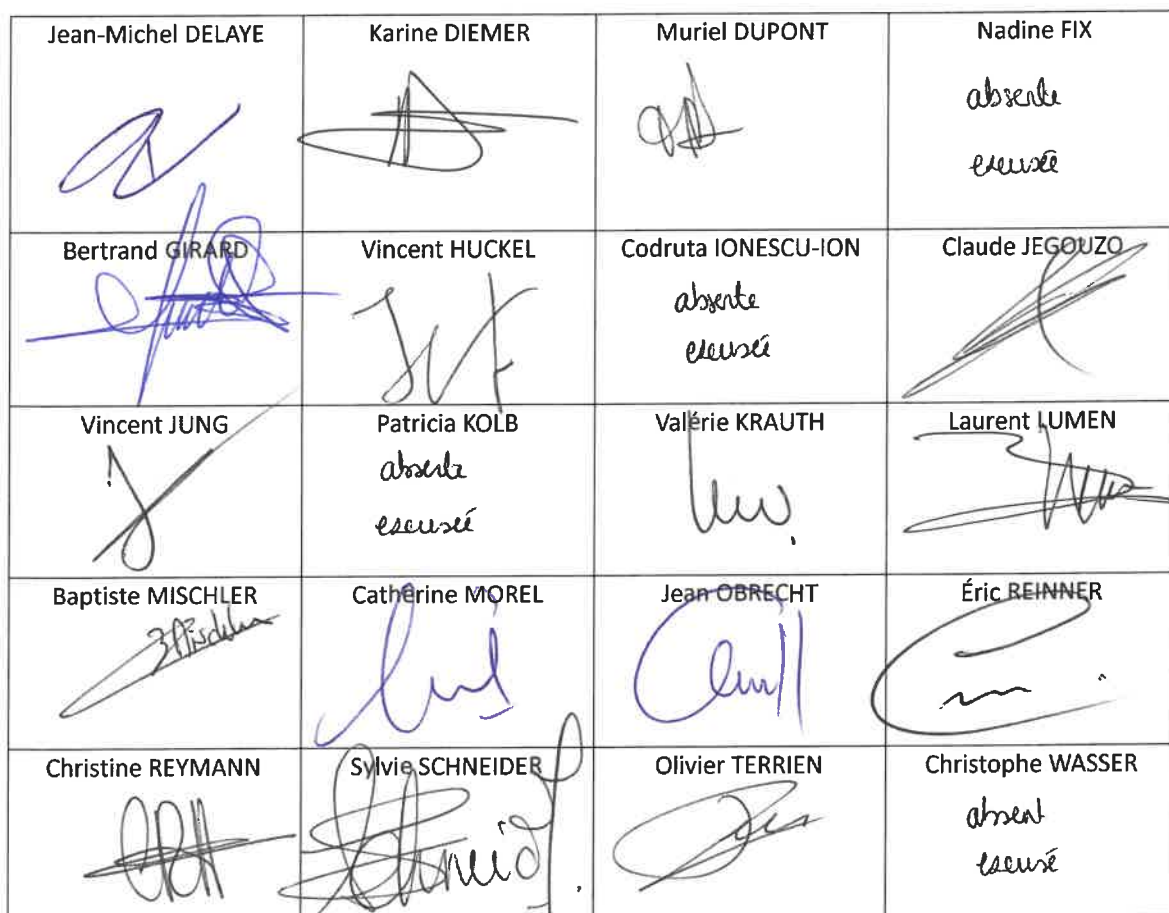 Jean-Michel DELAYE
Karine DIEMER
Muriel DUPONT
Nadine FIX
absente
excusée
Bertrand GIRARD
Vincent HUCKEL
Codruta IONESCU-ION
Claude JEGOUZO
absente
excusée
Vincent JUNG
Patricia KOLB
Valérie KRAUTH
Laurent LUMEN
absente
excusée
Baptiste MISCHLER
Catherine MOREL
Jean OBRECHT
Éric REINNER
Christine REYMANN
Sylvie SCHNEIDER
Olivier TERRIEN
Christophe WASSER
absent
excusé